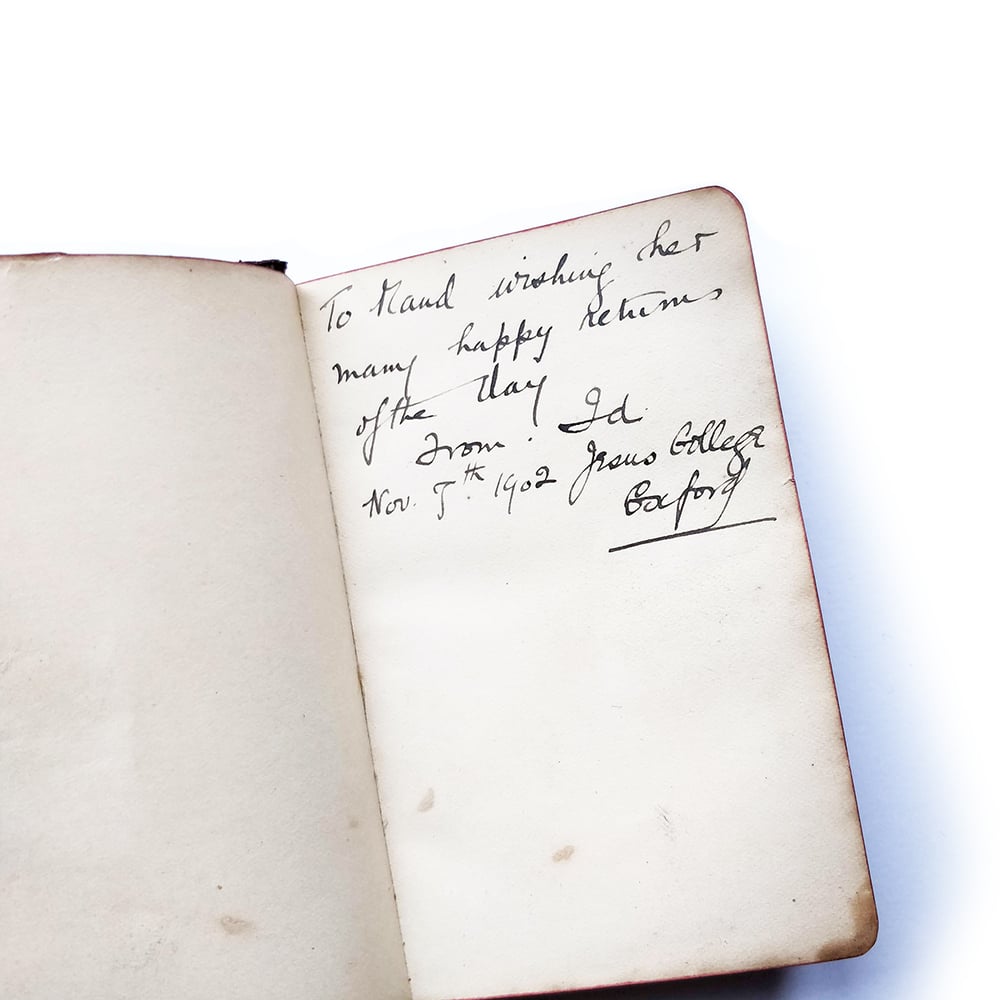 To Maud wishing her
many happy returns
of the day
From Id.
Nov. 5th. 1902 Jesus College
Oxford